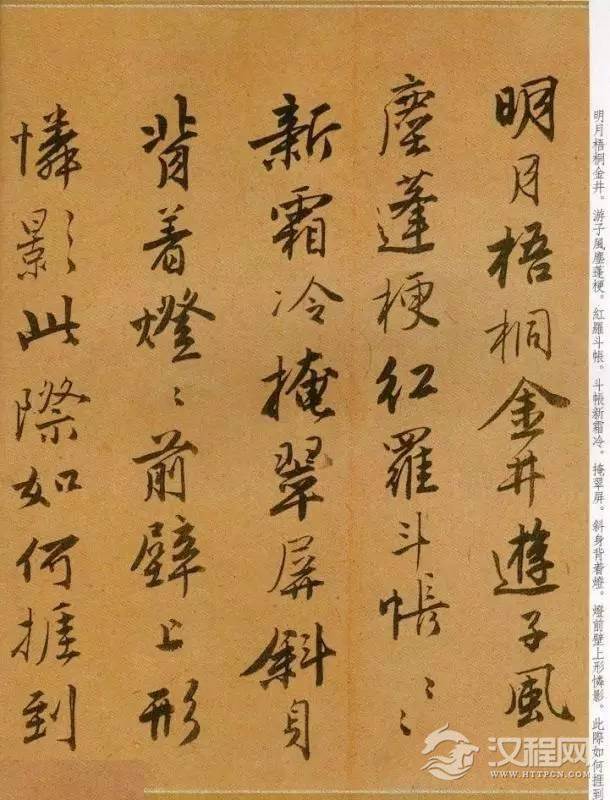 明月梧桐金井遊子風
塵蓬梗红羅斗帳〻〻
新霜冷掩翠屏斜身
背着燈〻前壁上形
憐影此際如何捱到
明月梧桐金井。游子風塵蓬梗。紅羅斗帳。斗帳新霜冷。掩翠屏。斜身背着燈。燈前壁上形憐影。此際如何捱到
汉程网
WWW.HTTPCN.COM